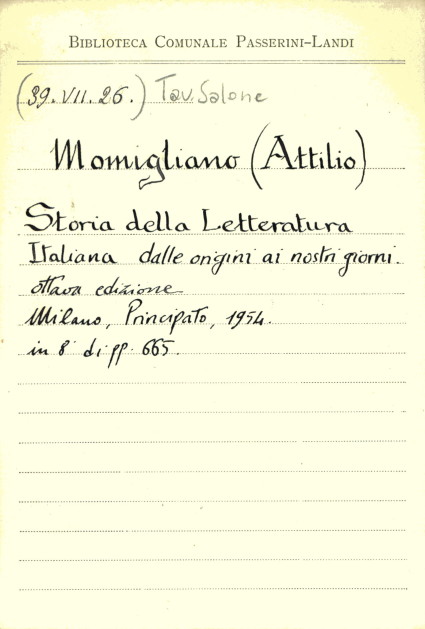 BIBLIOTECA COMUNALE PASSERINI-LANDI
(39.VII.26.) Tav. Salone
Momigliano (Attilio)
Storia della Letteratura
Italiana dalle origini ai nostri giorni.
ottava edizione
Milano, Principato, 1954.
in 8° di pp. 665.